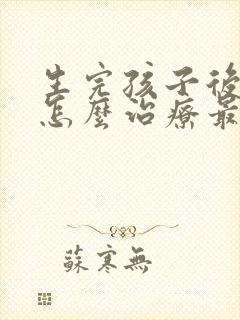 生完孩子後
怎麼治療最
蘇寒無